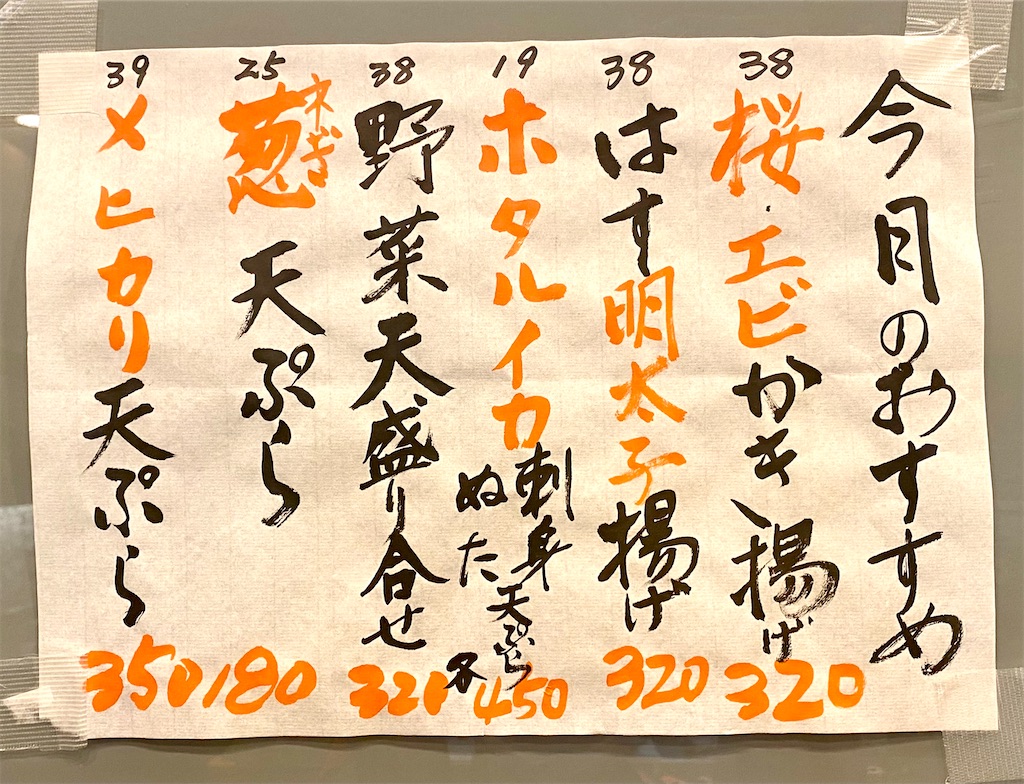 今月のおすすめ
38
桜エビかき揚げ
320
38
はす明太子揚げ
320
19
ホタルイカ
刺身
ぬた
天ぷら
各450
38
野菜天盛り合せ
320
25
葱
ネギ
天ぷら
180
39
メヒカリ天ぷら
350